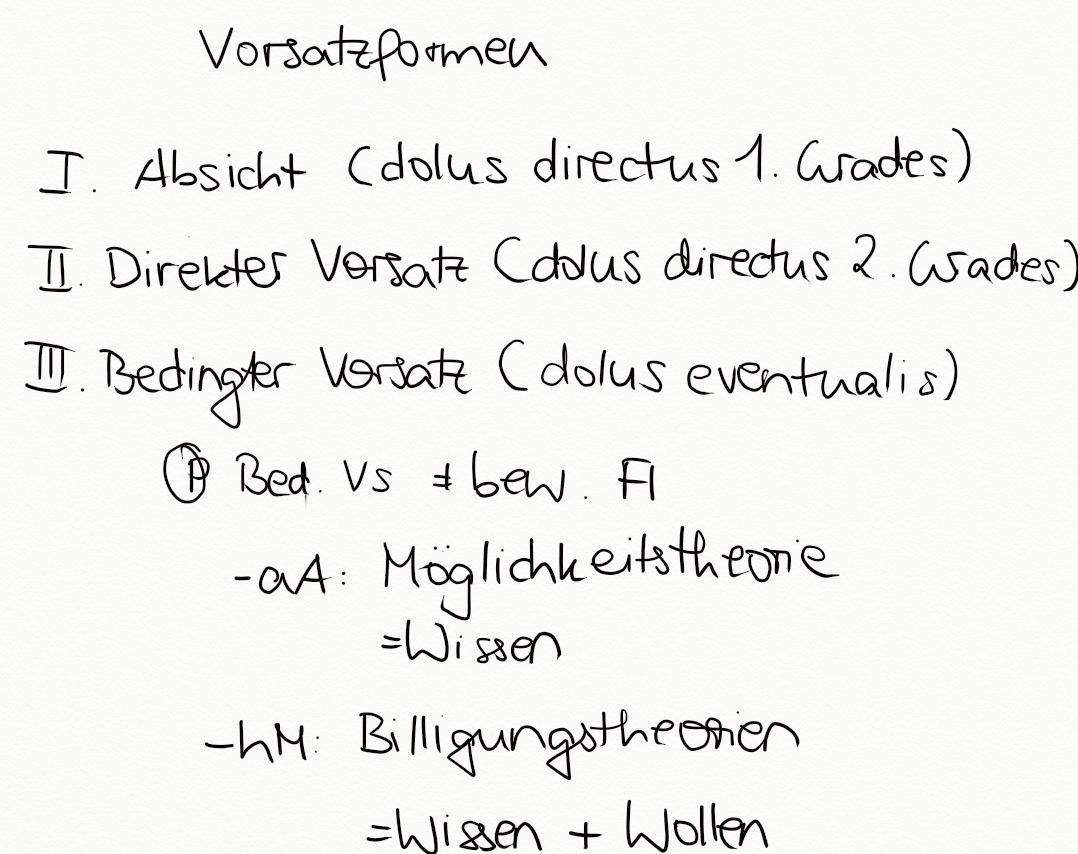 Vorsatzformen
I. Absicht (dolus directus 1. Grades)
II. Direkter Vorsatz (dolus directus 2. Grades)
III. Bedingter Vorsatz (dolus eventualis)
Ⓟ Bed. Vs ≠ bew. Fl
-aA: Möglichkeitstheorie
=Wissen
-hM: Billigungstheorien
=Wissen + Wollen